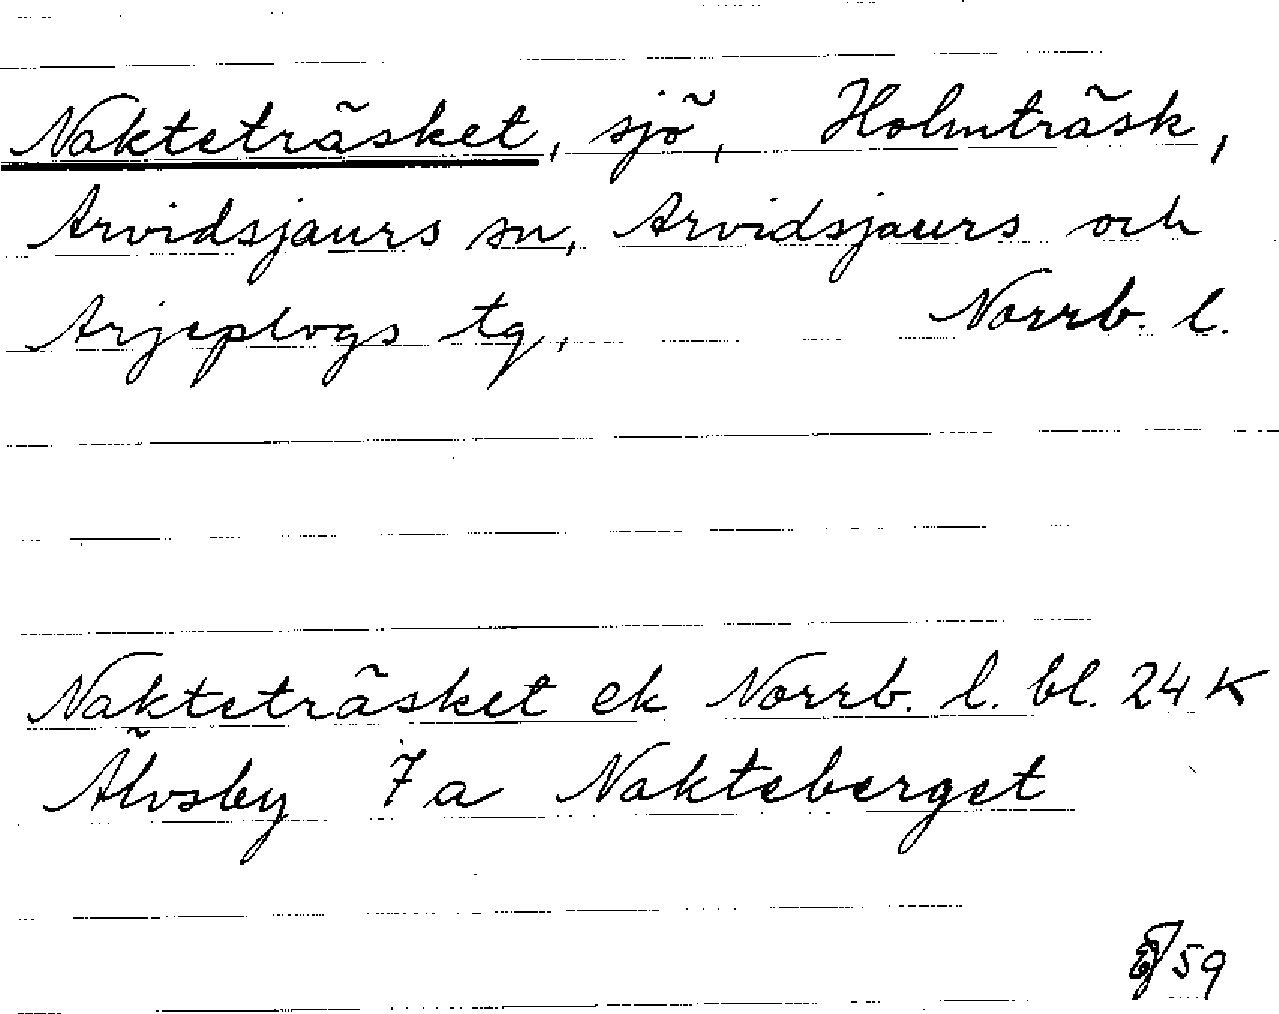 Nakteträsket, sjö, Holmträsk,
Arvidsjaurs sn, Arvidsjaurs och
Arjeplogs tg, Norrb. l.
Nakteträsket ek Norrb. l. bl. 24 K
Älvsby 7a Nakteberget
59